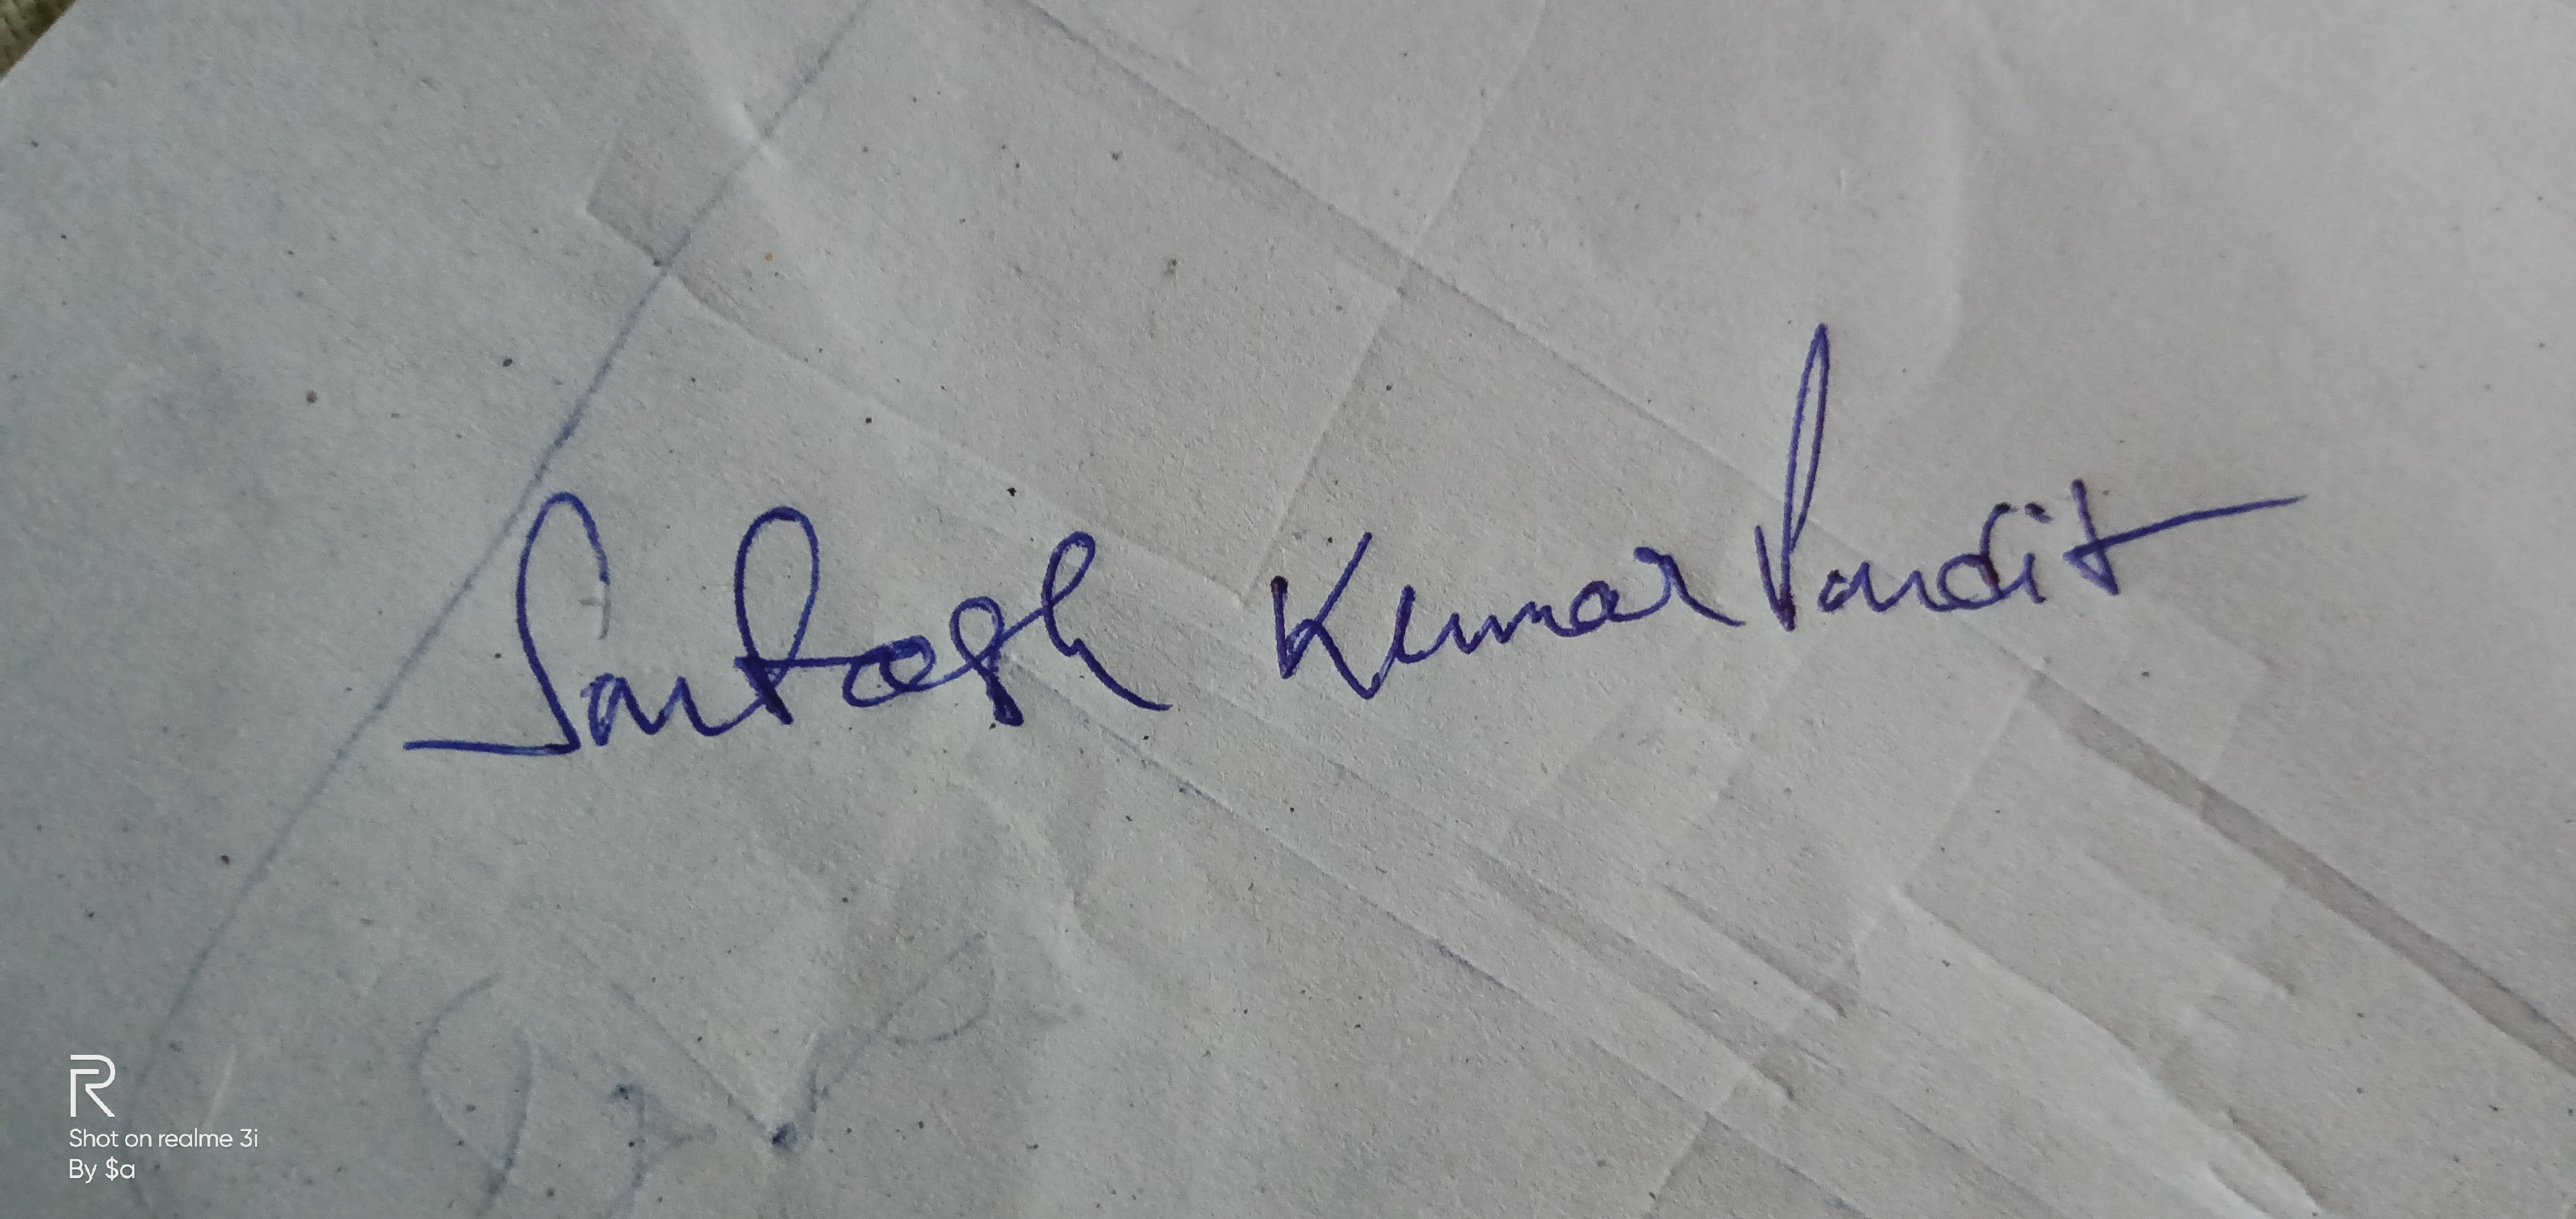 Santosh Kumar Pandit
R
Shot on realme 3i
By $a